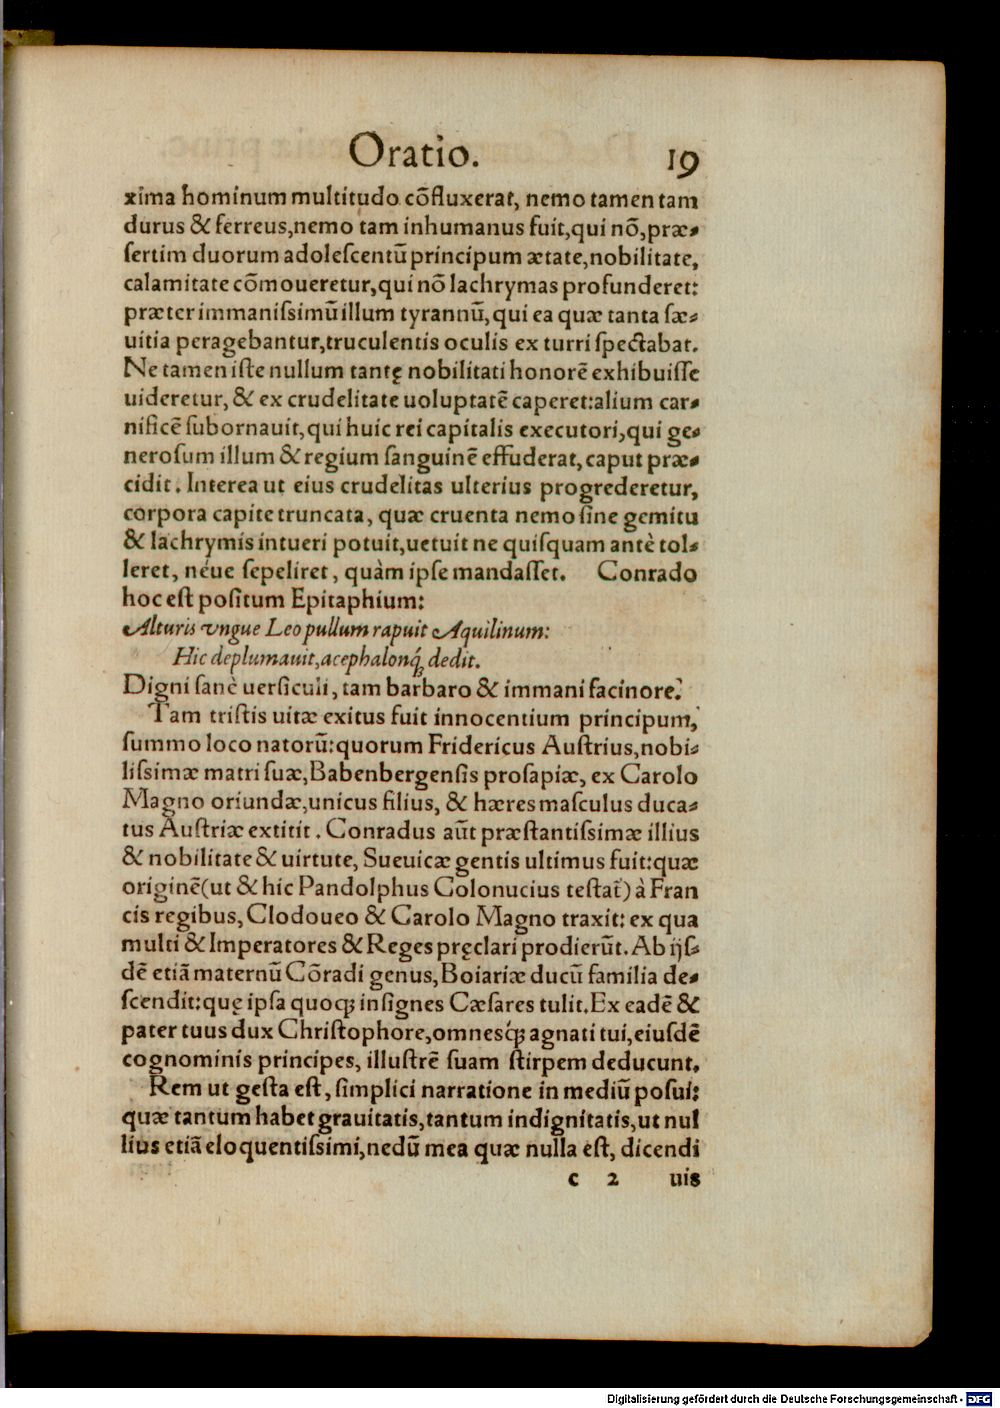 Oratio. 19
xima hominum multitudo cõfluxerat, nemo tamen tam
durus & ferreus,nemo tam inhumanus fuit,qui nõ,præ-
ſertim duorum adoleſcentũ principum ætate,nobilitate,
calamitate cõmoueretur,qui nõ lachrymas profunderet:
præter immaniſsimũ illum tyrannũ,qui ea quæ tanta ſæ-
uitia peragebantur,truculentis oculis ex turri ſpectabat.
Ne tamen iſte nullum tantę nobilitati honorẽ exhibuiſſe
uideretur, & ex crudelitate uoluptatẽ caperet:alium car-
nificẽ ſubornauit,qui huic rei capitalis executori,qui ge-
neroſum illum & regium ſanguinẽ effuderat, caput præ-
cidit. Interea ut eius crudelitas ulterius progrederetur,
corpora capite truncata, quæ cruenta nemo ſine gemitu
& lachrymis intueri potuit,uetuit ne quiſquam antè tol-
leret, néue ſepeliret, quàm ipſe mandaſſet. Conrado
hoc eſt poſitum Epitaphium:
Alturis vngue Leo pullum rapuit Aquilinum:
Hic deplumauit,acephalonq́ꝫ dedit.
Digni ſanè uerſiculi, tam barbaro & immani facinore.
Tam triſtis uitæ exitus fuit innocentium principum,
ſummo loco natorũ:quorum Fridericus Auſtrius,nobi-
liſsimæ matri ſuæ,Babenbergenſis proſapiæ, ex Carolo
Magno oriundæ,unicus filius, & hæres maſculus duca-
tus Auſtriæ extitit. Conradus aũt præſtantiſsimæ illius
& nobilitate & uirtute, Sueuicæ gentis ultimus fuit:quæ
originẽ(ut & hic Pandolphus Colonucius teſtat̃) à Fran
cis regibus, Clodoueo & Carolo Magno traxit: ex qua
multi & Imperatores & Reges pręclari prodierũt. Ab ijſ-
dẽ etiã maternũ Cõradi genus,Boiariæ ducũ familia de-
ſcendit:quę ipſa quoqꝫ inſignes Cæſares tulit. Ex eadẽ &
pater tuus dux Chriſtophore,omnesq́ꝫ agnati tui,eiuſdẽ
cognominis principes, illuſtrẽ ſuam ſtirpem deducunt.
Rem ut geſta eſt, ſimplici narratione in mediũ poſui:
quæ tantum habet grauitatis,tantum indignitatis,ut nul
lius etiã eloquentiſsimi,nedũ mea quæ nulla eſt, dicendi
c 2 uis
Digitalisierung gefördert durch die Deutsche Forschungsgemeinschaft - DFG